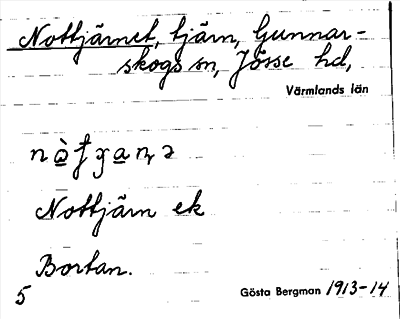 Nottjärnet, tjärn, Gunnar-
skogs sn, Jösse hd,
Värmlands län
Nottjärn ek
Bortan.
5 Gösta Bergman 1913-14